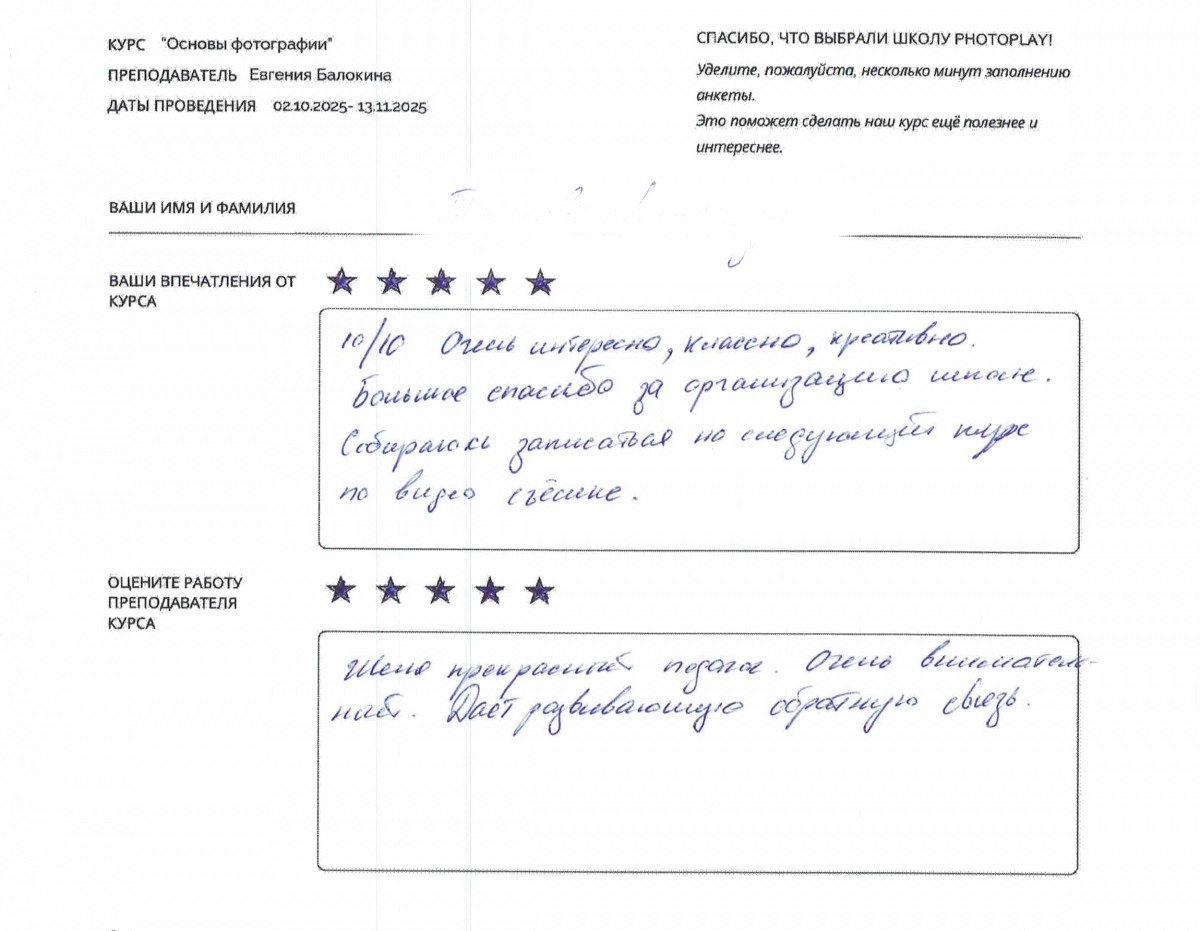 КУРС "Основы фотографии"
ПРЕПОДАВАТЕЛЬ Евгения Балокина
ДАТЫ ПРОВЕДЕНИЯ 02.10.2025- 13.11.2025
СПАСИБО, ЧТО ВЫБРАЛИ ШКОЛУ PHOTOPLAY!
Уделите, пожалуйста, несколько минут заполнению
анкеты.
Это поможет сделать наш курс ещё полезнее и
интереснее.
ВАШИ ИМЯ И ФАМИЛИЯ
ВАШИ ВПЕЧАТЛЕНИЯ ОТ
КУРСА
10/10 Очень интересно, классно, креативно.
Большое спасибо за организацию школе.
Собираюсь записаться на следующий курс
по видео съёмке.
ОЦЕНИТЕ РАБОТУ
ПРЕПОДАВАТЕЛЯ
КУРСА
Женя прекрасный педагог. Очень вниматель-
ная. Даёт развивающую обратную связь.